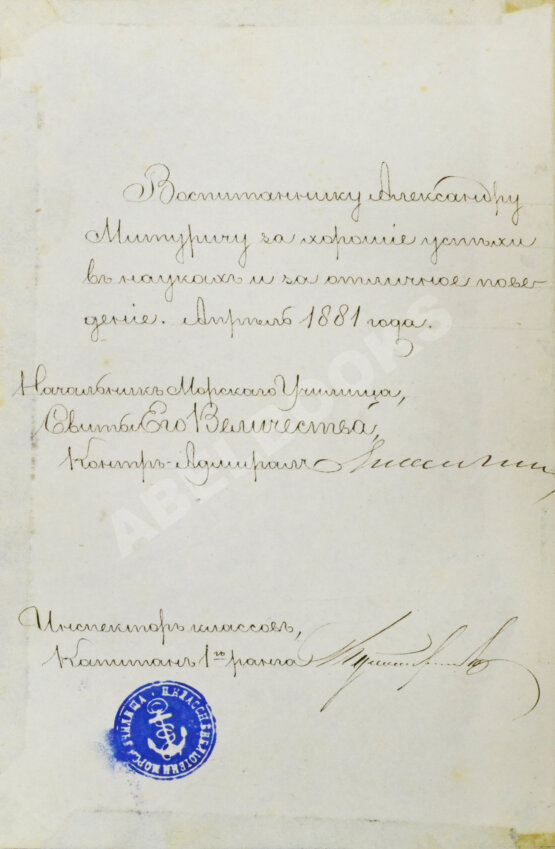 Воспитаннику Александру
Митуричу за хорошіе успѣхи
въ наукахъ и за отличное пове-
деніе. Апрѣль 1881 года.
Начальникъ Морскаго Училища,
Свиты Его Величества,
Контръ-Адмиралъ
Инспекторъ классовъ,
Капитанъ 1го ранга
ABELBOOKS